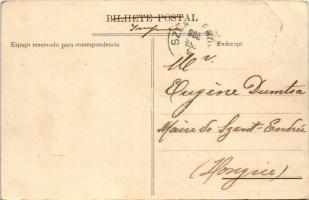 BILHETE POSTAL
Espaço reservado para correspondencia
Endereço
Mr.
Eugène Dumtsa
Maire de Szent-Endre
(Hongrie)